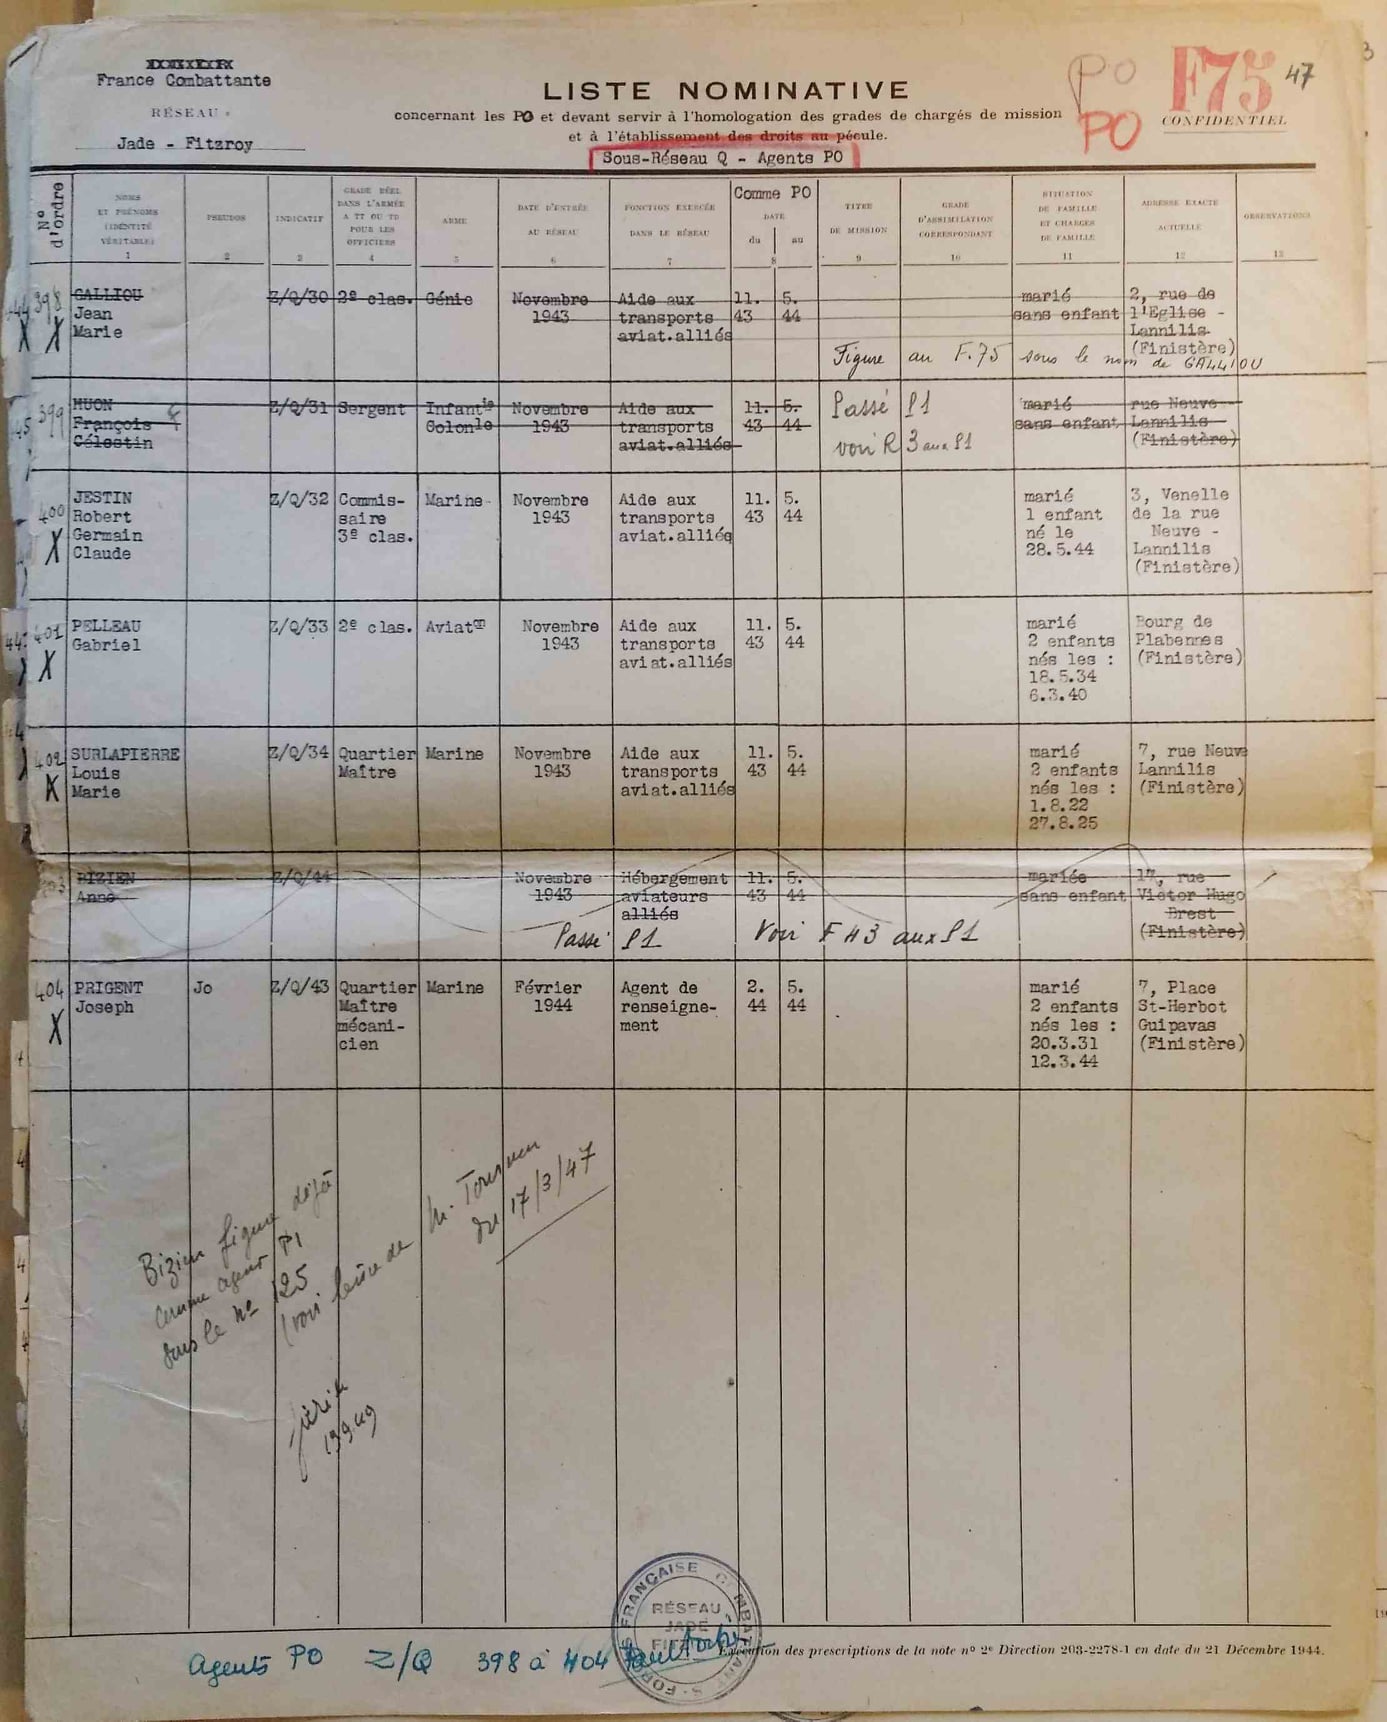 France Combattante
RÉSEAU :
Jade - Fitzroy
LISTE NOMINATIVE
concernant les PO et devant servir à l'homologation des grades de chargés de mission
et à l'établissement des droits au pécule.
Sous-Réseau Q - Agents PO
PO
PO
F75
47
CONFIDENTIEL
Nº d'ordre
NOMS ET PRÉNOMS (IDENTITÉ VÉRITABLE) 1
PSEUDOS 2
INDICATIF 3
GRADE RÉEL DANS L'ARMÉE A TT OU TD POUR LES OFFICIERS 4
ARME 5
DATE D'ENTRÉE AU RÉSEAU 6
FONCTION EXERCÉE DANS LE RÉSEAU 7
Comme PO DATE du au 8
TITRE DE MISSION 9
GRADE D'ASSIMILATION CORRESPONDANT 10
SITUATION DE FAMILLE ET CHARGES DE FAMILLE 11
ADRESSE EXACTE ACTUELLE 12
OBSERVATIONS 13
398 GALLIOU Z/Q/30 2e clas. Génie Novembre Aide aux 11. 5. marié 2, rue de
Jean 1943 transports 43 44 sans enfant l'Eglise -
X X Marie aviat.alliés Lannilis
(Finistère)
Figure au F.75 sous le nom de GALLIOU
399 HUON Z/Q/31 Sergent Infantie Novembre Aide aux 11. 5. Passé P1 marié rue Neuve
François Colonle 1943 transports 43 44 sans enfant Lannilis
Célestin aviat.alliés voir R 3 aux P1 (Finistère)
400 JESTIN Z/Q/32 Commis- Marine Novembre Aide aux 11. 5. marié 3, Venelle
Robert saire 1943 transports 43 44 1 enfant de la rue
X Germain 3e clas. aviat.alliés né le Neuve -
Claude 28.5.44 Lannilis
(Finistère)
401 PELLEAU Z/Q/33 2e clas. Aviaton Novembre Aide aux 11. 5. marié Bourg de
X Gabriel 1943 transports 43 44 2 enfants Plabennes
aviat.alliés nés les : (Finistère)
18.5.34
6.3.40
402 SURLAPIERRE Z/Q/34 Quartier Marine Novembre Aide aux 11. 5. marié 7, rue Neuve
X Louis Maître 1943 transports 43 44 2 enfants Lannilis
Marie aviat.alliés nés les : (Finistère)
1.8.22
27.8.25
BIZIEN Z/Q/44 Novembre Hébergement 11. 5. mariée 17, rue
Anne 1943 aviateurs 43 44 sans enfant Victor Hugo
alliés Brest
Passé P1 Voir F 43 aux P1 (Finistère)
404 PRIGENT Jo Z/Q/43 Quartier Marine Février Agent de 2. 5. marié 7, Place
X Joseph Maître 1944 renseigne- 44 44 2 enfants St-Herbot
mécani- ment nés les : Guipavas
cien 20.3.31 (Finistère)
12.3.44
Bizien figure déjà
comme agent P1
sous le nº 125
(voir lettre de M.
du 17/3/47
FORCES FRANÇAISES COMBATTANTES
RÉSEAU
JADE
FITZROY
Exécution des prescriptions de la note nº 2e Direction 203-2278-1 en date du 21 Décembre 1944.
Agents PO Z/Q 398 à 404